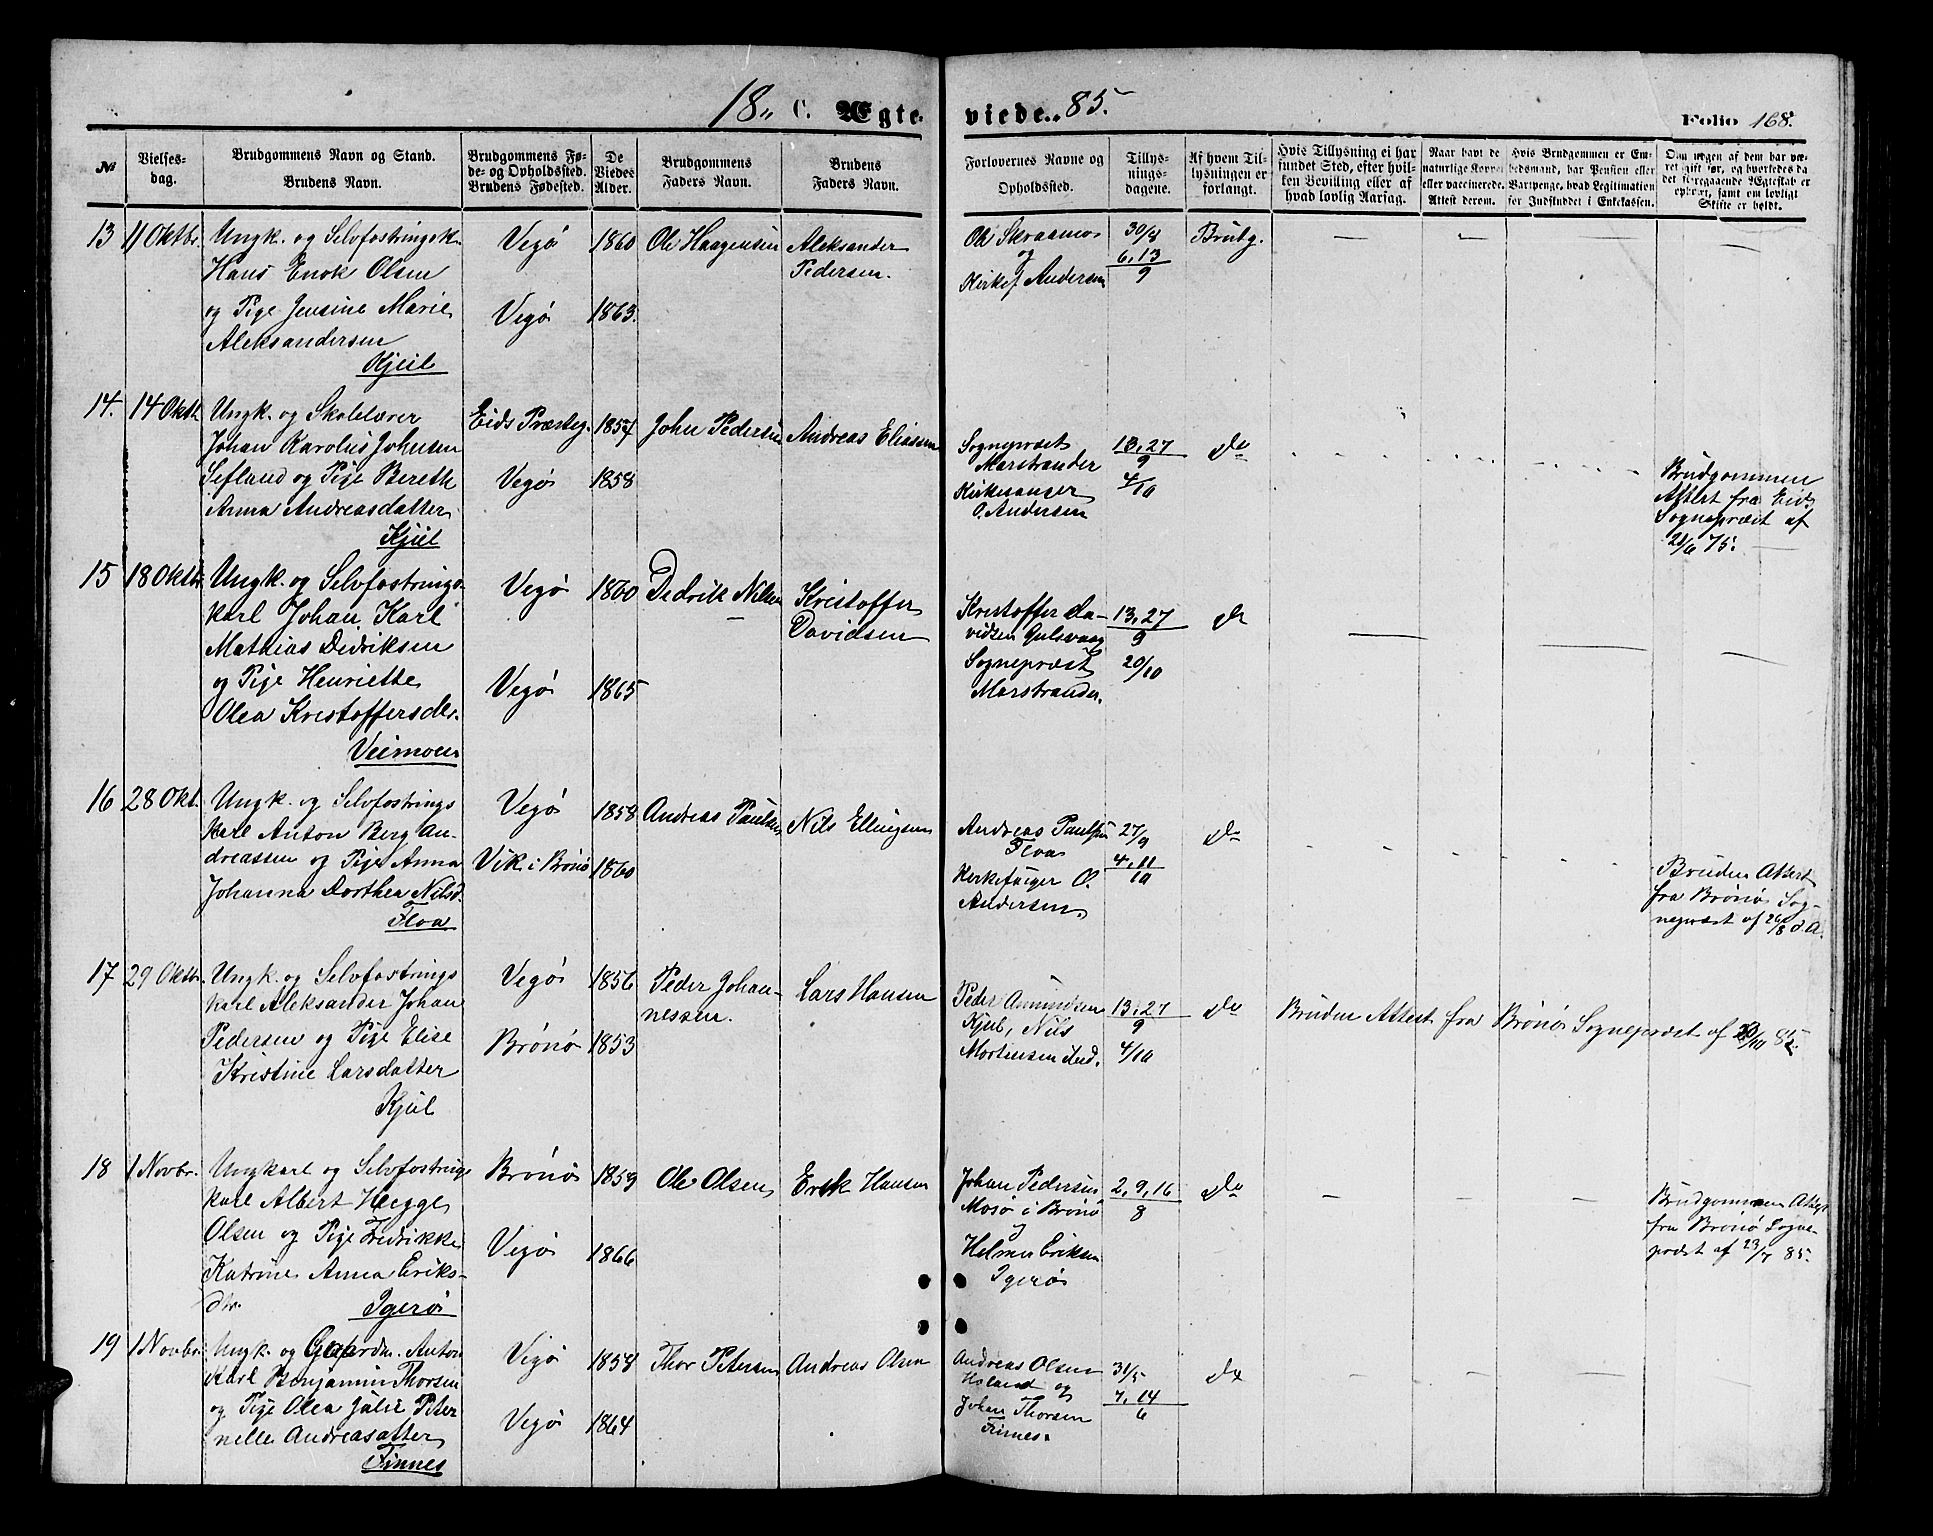 18,, C. Ægte viede. ,,85.
Folio 168.
№
Vielses-
dag.
Brudgommens Navn og Stand.
Brudens Navn.
Brudgommens Fø-
de- og Opholdssted.
Brudens Fødested.
De
Viedes
Alder.
Brudgommens
Faders Navn.
Brudens
Faders Navn.
Forlovernes Navne og
Opholdssted.
Tillys-
nings-
dagene.
Af hvem Til-
lysningen er
forlangt.
Hvis Tillysning ei har
fundet Sted, efter hvil-
ken Bevilling eller af
hvad lovlig Aarsag.
Naar havt de
naturlige Kopper
eller vaccinerede.
Attest derom.
Hvis Brudgommen er Em-
bedsmand, har Pension eller
Vartpenge, hvad Legitimation
for Indskuddet i Enkekassen.
Om nogen af dem har væ-
ret gift før, og hvorledes da
det foregaaende Ægteskab er
ophævet, samt om lovligt
Skifte er holdt.
13 11 Oktbr.
Ungk. og Selvfostringsk.
Hans Enok Olsen
og Pige Jensine Marie
Aleksandersen
Kjul
Vegø 1860
Vegø 1863.
Ole Haagensen
Aleksander
Pedersen.
Ole Skraamo
og
Kirkes. Andersen
30/8
6, 13
9
Brudg.
14. 14 Oktb.
Ungk. og Skolelærer
Johan Karolius Johnsen
Sefland og Pige Bereth
Anna Andreasdatter
Kjul
Eids Præsteg. 1857
Vegø 1858
John Pedersen
Andreas Eliassen
Sognepræst
Marstrander
Kirkesanger
O. Andersen
13, 27
9
4/10
do
Brudgommen
Attest fra Eids
Sognepræst af
21/6 75.
15 18 Oktbr.
Ungk. og Selvfostrings-
karl Johan Karl
Mathias Dedriksen
og Pige Henriette
Olea Kristoffersdtr.
Veimoen
Vegø 1860
Vegø 1865
Dedrik Nilsen
Kristoffer
Davidsen
Kristoffer Da-
vidsen Gulsvaag
Sognepræst
Marstrander.
13, 27
9
20/10
do
16 28 Okt.
Ungk. og Selvfostrings
karl Anton Berg An-
dreassen og Pige Anna
Johanna Dorthea Nilsd.
Floa
Vegø 1858
Vik i Brønø 1860
Andreas Paulsen
Nils Ellingsen
Andreas Paulsen
Floa
Kirkesanger O.
Andersen.
27/9
4, 11
10
do
Bruden Attest
fra Brønø Sog-
nepræst af 26/8 d. A.
17 29 Oktbr.
Ungk. og Selvfostrings
karl Aleksander Johan
Pedersen og Pige Elise
Kristine Larsdatter
Kjul
Vegø 1856
Brønø 1853
Peder Johan-
nessen.
Lars Hansen
Peder Amundsen
Kjul, Nils
Mortensen ibid.
13, 27
9
4/10
do
Bruden Attest fra Brønø Sognepræst af /10 85.
18 1 Novbr.
Ungkarl og Selvfostrings
karl Albert Hegge
Olsen og Pige Fredrikke
Katrine Anna Eriks-
dtr.
Igerø
Brønø 1859
Vegø 1866
Ole Olsen
Erik Hansen
Johan Pedersen
Mosø i Brønø
og
Helmer Eriksen
Igerø
2, 9, 16
8
do
Brudgommen Attest
fra Brønø Sogne-
præst af 23/7 85.
19 1 Novbr.
Ungk. og Gaardm. Anton
Karl Benjamin Thorsen
og Pige Olea Julie Peter
nelle Andreasatter
Finnes
Vegø 1858
Vegø 1864
Thor Petersen
Andreas Olsen
Andreas Olsen
Holand og
Johan Thorsen
Finnes.
31/5
7, 14
6
do